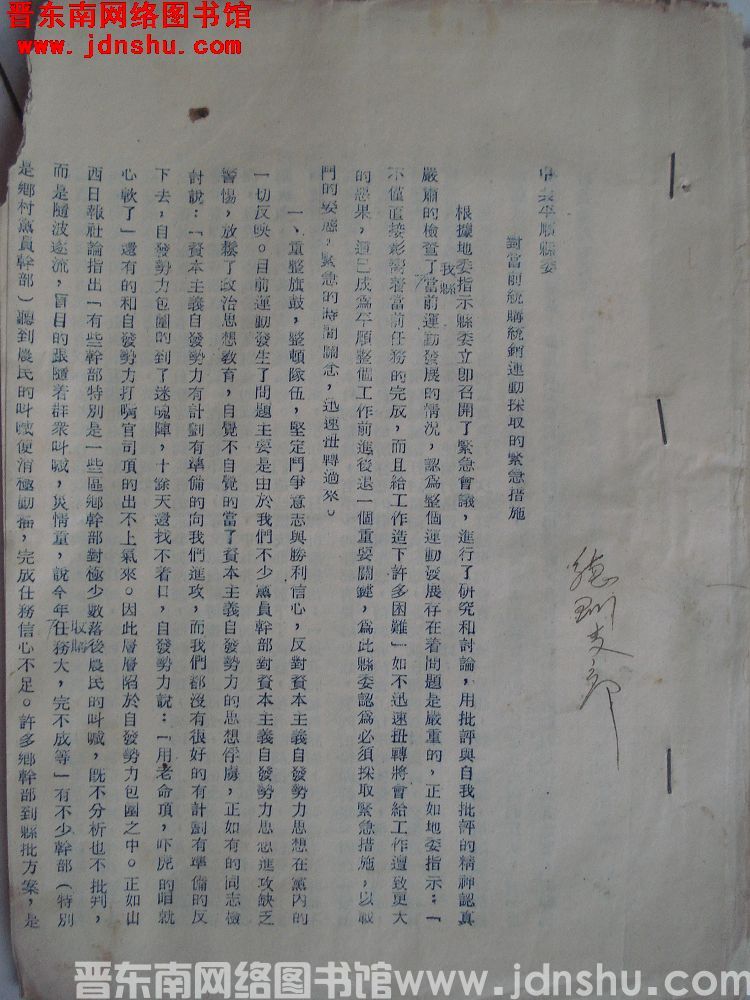 晋东南网络图书馆
www.jdnshu.com
中共平順縣委
對當前統購統銷運動採取的緊急措施
根據地委指示縣委立卽召開了緊急會議，進行了研究和討論，用批評與自我批評的精神認真
嚴肅的檢查了我縣當前運動發展的情況，認爲整個運動發展存在着問題是嚴重的，正如地委指示：「
不僅直接影响着當前任務的完成，而且給工作造下許多困難」如不迅速扭轉將會給工作遭致更大
的惡果，這已成爲平順整個工作前進後退一個重要關鍵，爲此縣委認爲必須採取緊急措施，以戰
鬥的姿態，緊急的時間關念，迅速扭轉過來。
一、重整旗鼓，整頓隊伍，堅定鬥爭意志與勝利信心，反對資本主義自發勢力思想在黨內的
一切反映。目前運動發生了問題主要是由於我們不少黨員幹部對資本主義自發勢力思想進攻缺乏
警惕，放鬆了政治思想教育，自覺不自覺的當了資本主義自發勢力的思想俘虜，正如有的同志檢
討說：「資本主義自發勢力有計劃有準備的向我們進攻，而我們都沒有很好的有計劃有準備的反
下去，自發勢力包圍的到了迷魂陣，十餘天還找不着口，自發勢力說：「用老命頂，吓唬的咱就
心軟了」還有的和自發勢力打啊官司頂的出不上氣來。因此層層陷於自發勢力包圍之中。正如山
西日報社論指出「有些幹部特別是一些區鄉幹部對極少數落後農民的叫喊，既不分析也不批判，
而是隨波逐流，盲目的跟隨着群衆叫喊，災情重，說今年收購任務大，完不成等」有不少幹部（特別
是鄉村黨員幹部）聽到農民的叫喊便消極動搖，完成任務信心不足。許多鄉幹部到縣批方案，是
支部
晋东南网络图书馆www.jdnshu.com